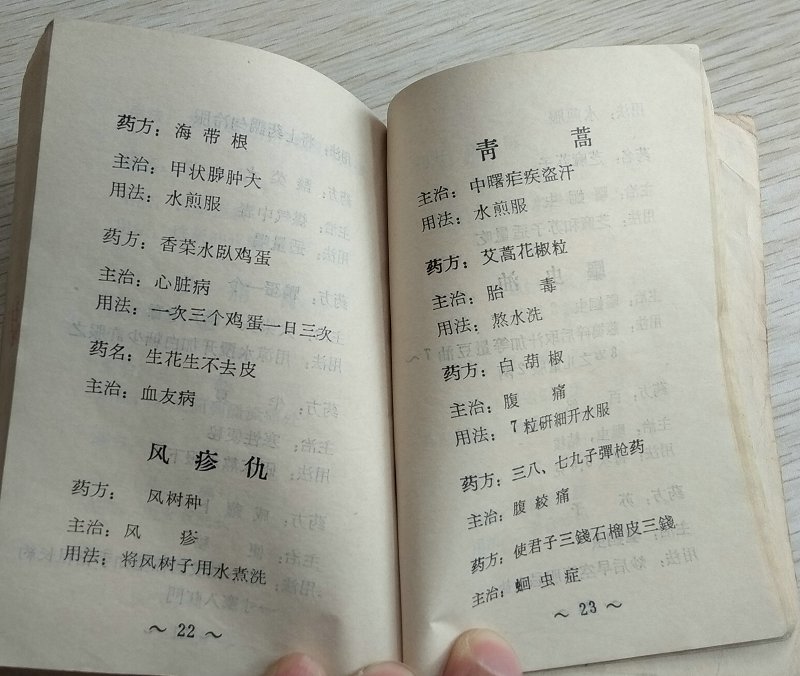 药方：海带根
主治：甲状腺肿大
用法：水煎服
药方：香菜水臥鸡蛋
主治：心脏病
用法：一次三个鸡蛋一日三次
药名：生花生不去皮
主治：血友病
风疹仇
药方：风树种
主治：风疹
用法：将风树子用水煮洗
～22～
青蒿
主治：中曙疟疾盗汗
用法：水煎服
药方：艾蒿花椒粒
主治：胎毒
用法：熬水洗
药方：白胡椒
主治：腹痛
用法：7粒研細开水服
药方：三八、七九子彈枪药
主治：腹絞痛
药方：使君子三錢石榴皮三錢
主治：蛔虫症
～23～